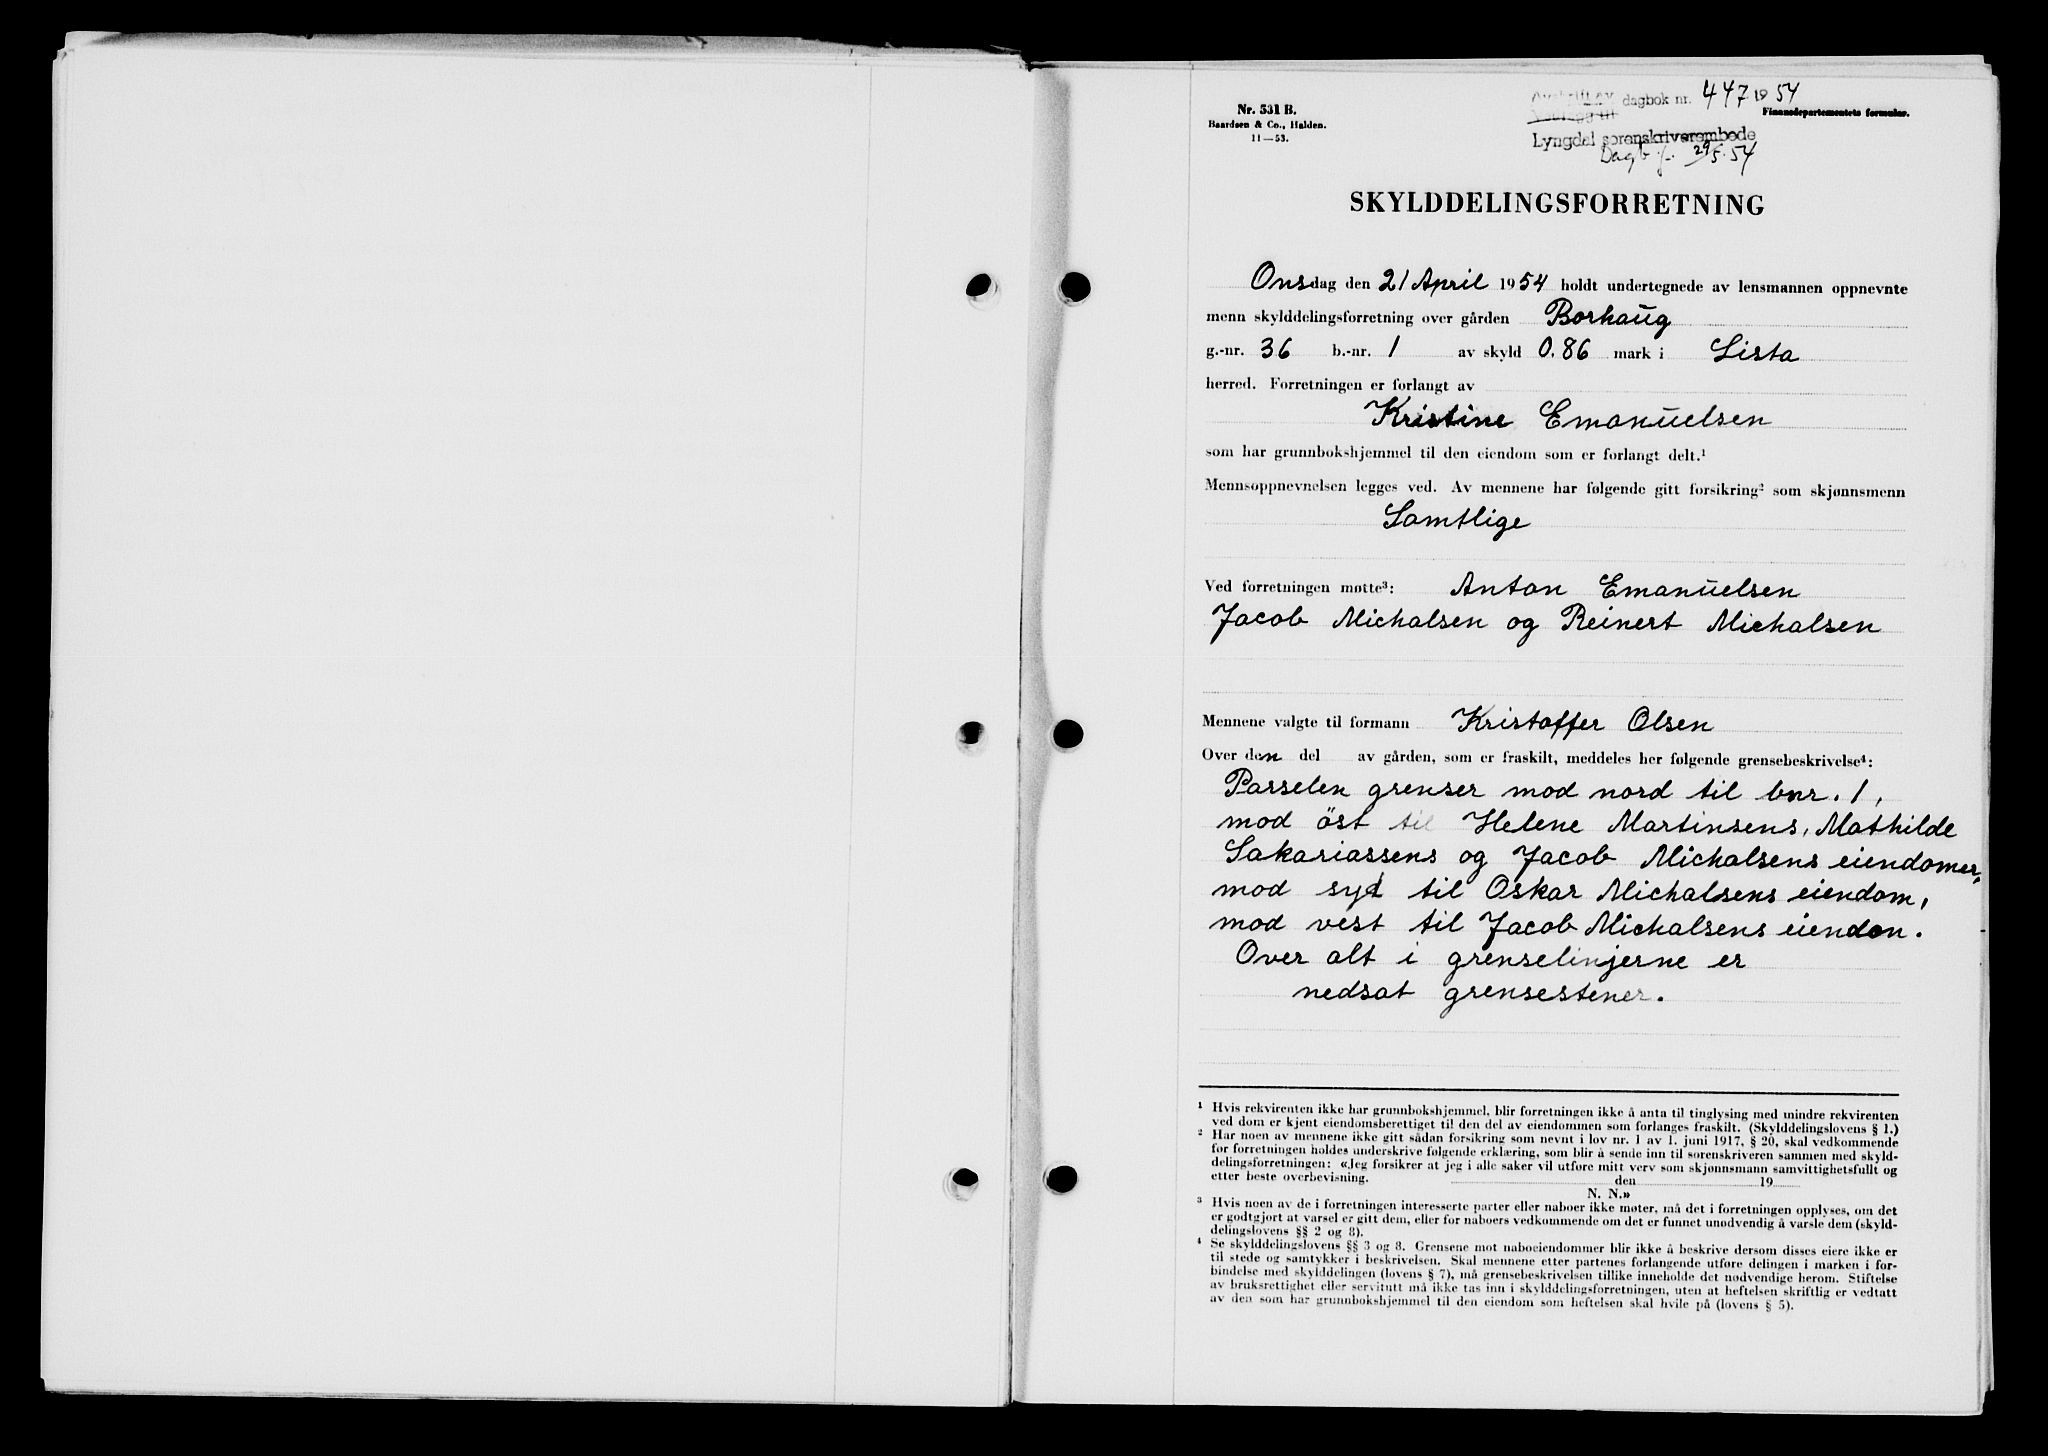 Nr. 531 B.
Baardsen & Co., Halden.
11—53.
dagbok nr. 447 1954
Finansdepartementets formular.
Lyngdal sorenskriverembede
Dagb.f. 29/5. 54
SKYLDDELINGSFORRETNING
Onsdag den 21 April 1954 holdt undertegnede av lensmannen oppnevnte
menn skylddelingsforretning over gården Borhaug
g.-nr. 36 b.-nr. 1 av skyld 0.86 mark i Lista
herred. Forretningen er forlangt av
Kristine Emanuelsen
som har grunnbokshjemmel til den eiendom som er forlangt delt.¹
Mennsoppnevnelsen legges ved. Av mennene har følgende gitt forsikring² som skjønnsmenn
Samtlige
Ved forretningen møtte³: Anton Emanuelsen
Jacob Michalsen og Reinert Michalsen
Mennene valgte til formann Kristoffer Olsen
Over den del av gården, som er fraskilt, meddeles her følgende grensebeskrivelse⁴:
Parselen grenser mod nord til bnr. 1,
mod öst til Helene Martinsens, Mathilde
Sakariassens og Jacob Michalsens eiendomer,
mod syd til Oskar Michalsens eiendom,
mod vest til Jacob Michalsens eiendon.
Over alt i grenselinjerne er
nedsat grensestener.
¹ Hvis rekvirenten ikke har grunnbokshjemmel, blir forretningen ikke å anta til tinglysing med mindre rekvirenten
ved dom er kjent eiendomsberettiget til den del av eiendommen som forlanges fraskilt. (Skylddelingslovens § 1.)
² Har noen av mennene ikke gitt sådan forsikring som nevnt i lov nr. 1 av 1. juni 1917, § 20, skal vedkommende
før forretningen holdes underskrive følgende erklæring, som blir å sende inn til sorenskriveren sammen med skyld-
delingsforretningen: «Jeg forsikrer at jeg i alle saker vil utføre mitt verv som skjønnsmann samvittighetsfullt og
etter beste overbevisning. den 19
N. N.»
³ Hvis noen av de i forretningen interesserte parter eller naboer ikke møter, må det i forretningen opplyses, om det
er godtgjort at varsel er gitt dem, eller for naboers vedkommende om det er funnet unødvendig å varsle dem (skyld-
delingslovens §§ 2 og 8).
⁴ Se skylddelingslovens §§ 3 og 8. Grensene mot naboeiendommer blir ikke å beskrive dersom disses eiere ikke er
til stede og samtykker i beskrivelsen. Skal mennene etter partenes forlangende utføre delingen i marken i for-
bindelse med skylddelingen (lovens § 7), må grensebeskrivelsen tillike inneholde det nødvendige herom. Stiftelse
av bruksrettighet eller servitutt må ikke tas inn i skylddelingsforretningen, uten at heftelsen skriftlig er vedtatt
av den som har grunnbokshjemmel til den eiendom som heftelsen skal hvile på (lovens § 5).